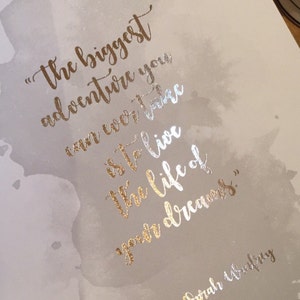 "the biggest
adventure you
can ever take
is to live
the life of
your dreams."
Oprah Winfrey